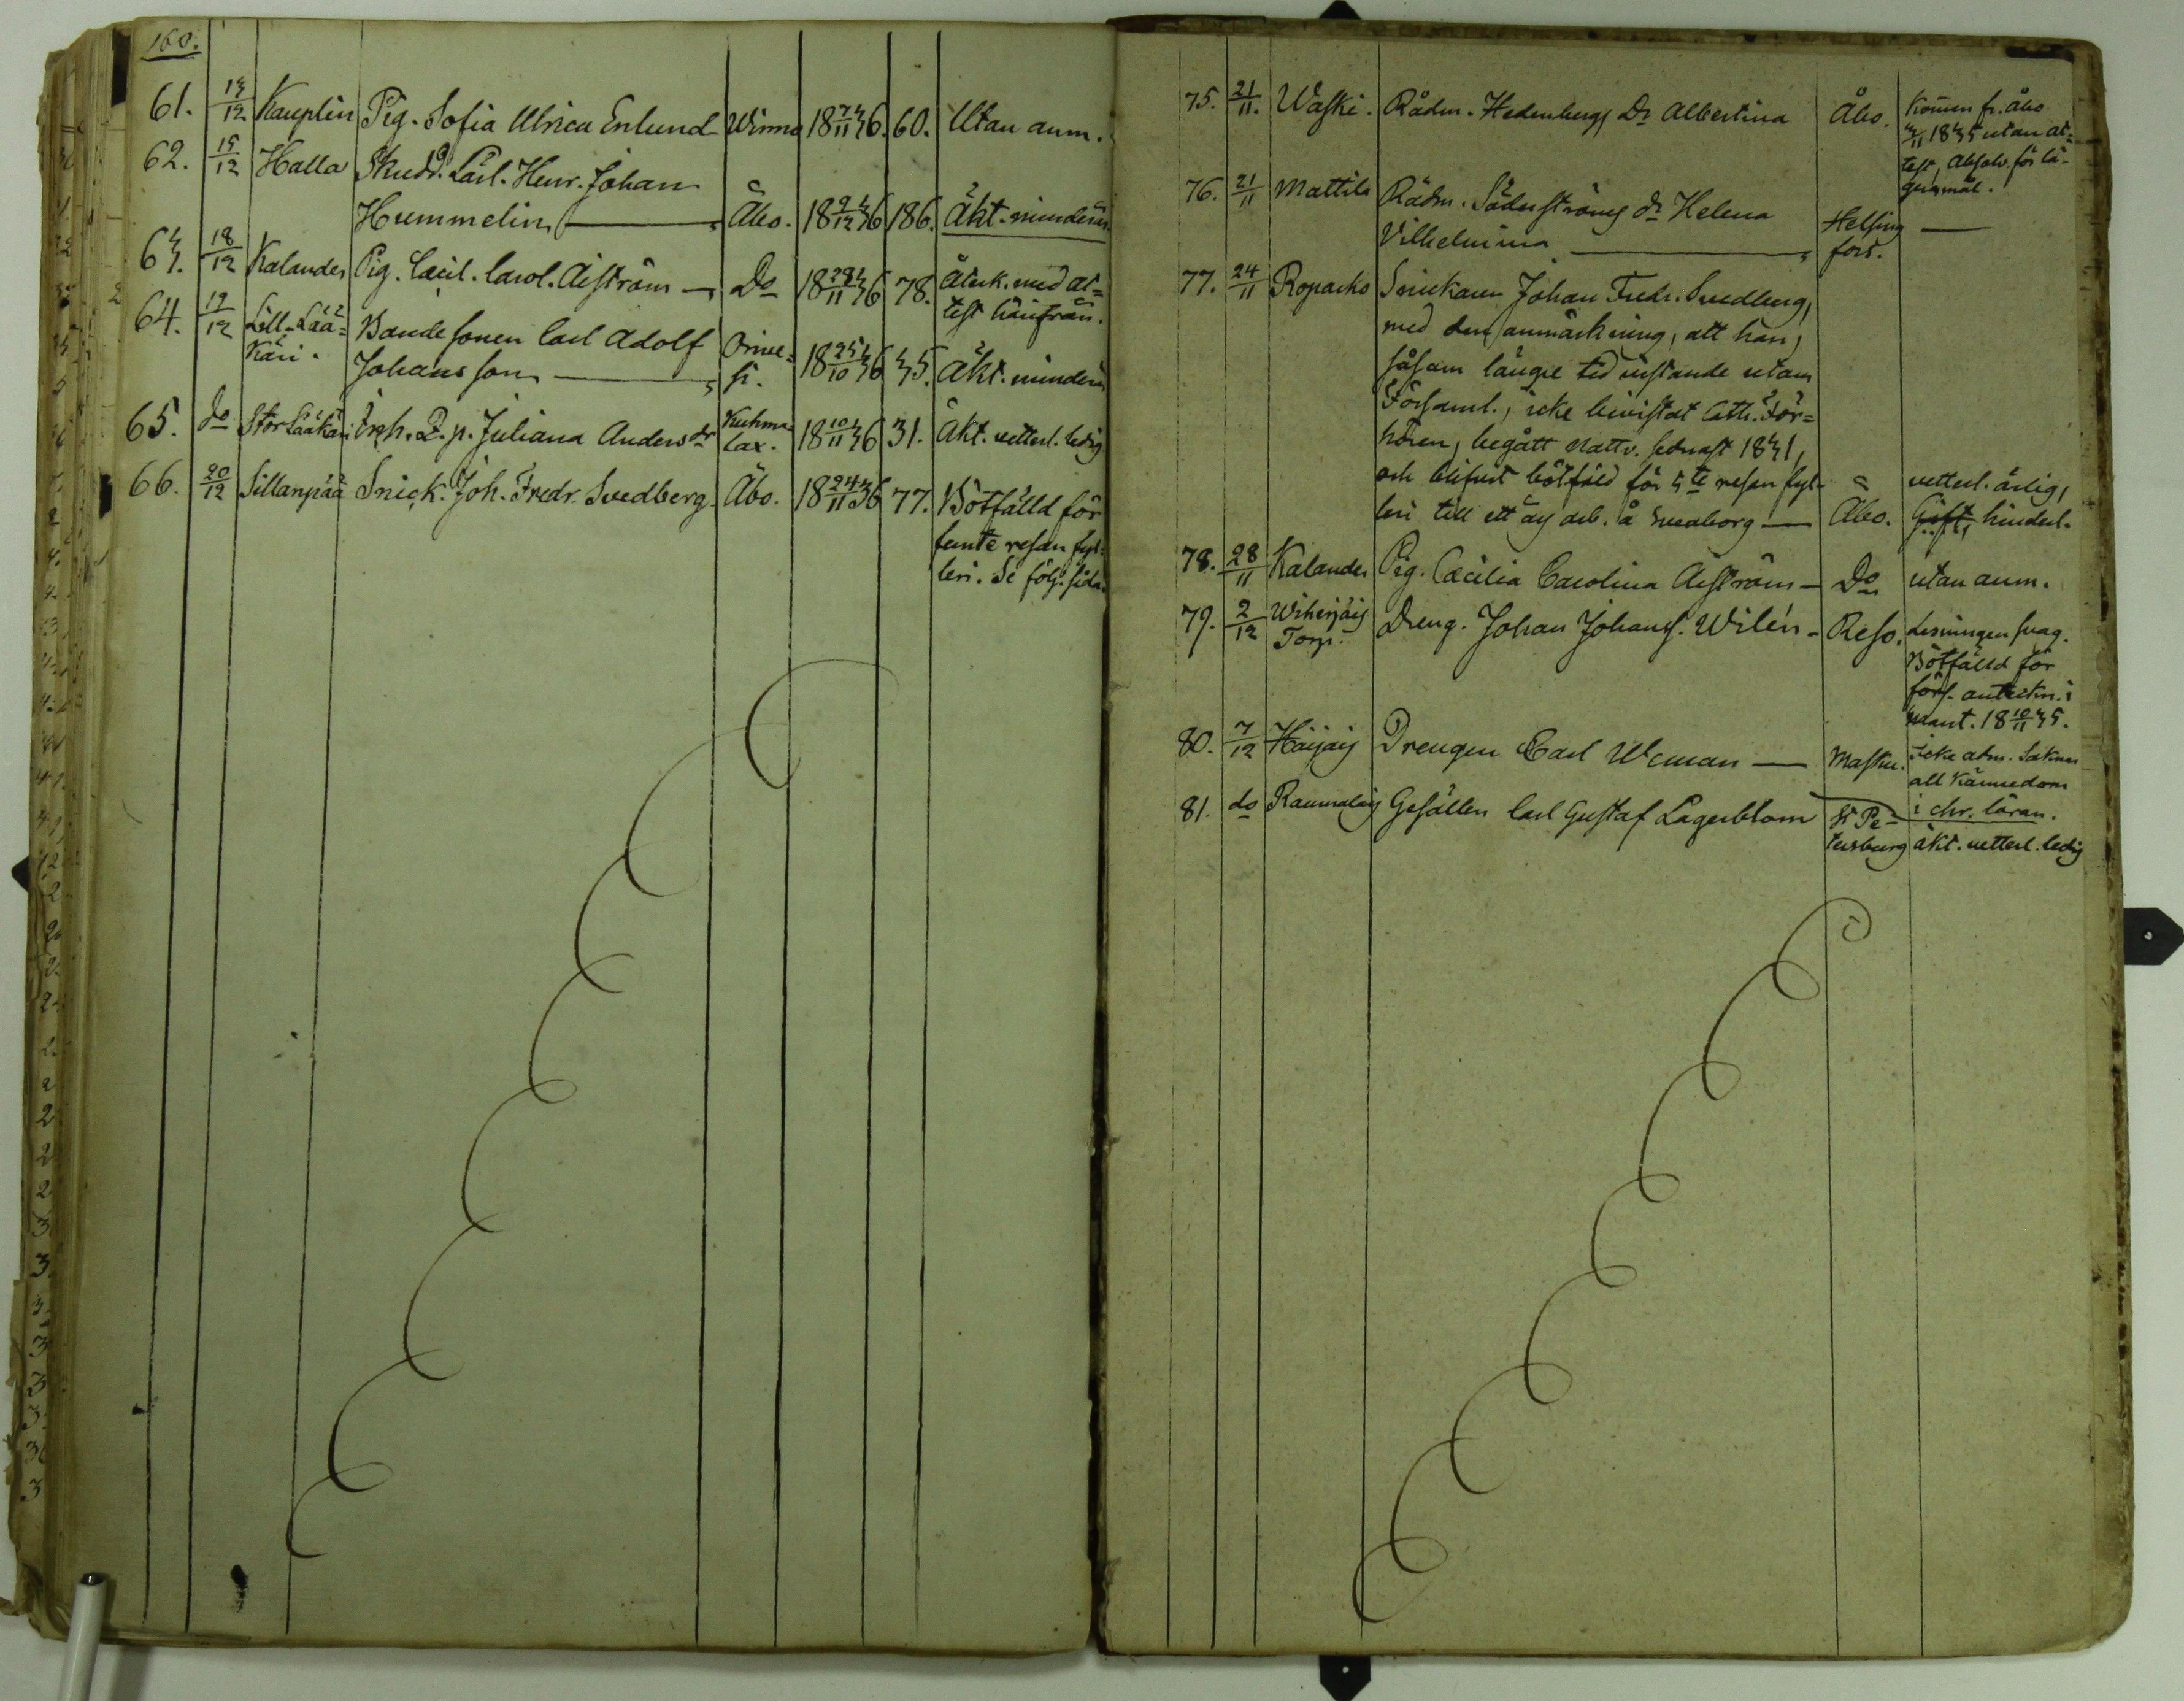 160.
61. 14/12 Kauplin Pig. Sofia Ulrica Enlund Winmo 18 7/11 36. 60. Utan anm.
62. 15/12 Halla Skrädd. Lärl. Henr. Johan
Hummelin Åbo. 18 2/12 36 186. Äkt. minderår
63. 18/12 Kalander Pig. Cæcil. Carol. Aiström Do 18 28/11 36 78. Återk. med at=
test härifrån.
64. 19/12 Lill-Lää= Bondesonen Carl Adolf
käri. Johansson 18 25/10 36 35. Äkt. minderår
65. do Stor Lääkäri Inh. Juliana Anders dr Kuhma
lax. 18 10/11 36 31. Äkt. vetterl. ledig
66. 20/12 Sillanpää Snick. Joh. Fredr. Svedberg. Åbo. 18 24/11 36 77. Bötfälld för
femte resan fyl=
leri. Se följ. sida.
75. 21/11. Waski. Rådm. Hedenbergs Dr Albertina Åbo. Kommen fr. Åbo
1835 utan at=
test, Absolv. för lä-
gersmål.
76. 21/11 Mattila Rådm. Söderströms dr Helena
Vilhelmina Helsing
fors.
77. 24/11 Roparko Snickaren Johan Fredr. Svedberg,
med den anmärkning, att han,
såsom längre tid vistande utom
Församl., icke bivistat Cath. För=
hören, begått Nattv. sednast 1831,
och blifvit bötfäld för 5te resan fyl-
leri till ett års arb. å Sveaborg Åbo. vetterl. ärlig,
Gift, hinderl.
78. 28/11 Kalander Pig. Cæcilia Carolina Aiström Do utan anm.
79. 2/12 Wiherjärj
Torp. Dreng. Johan Johans. Wilén Reso. Läsningen svag.
Bötfälld för
förs. anteckn. i
mant. 18 10/11 35.
80. 7/12 Häijäij Drengen Carl Weman Masku. Icke adm. Saknar
all kännedom
i chr. läran.
81. do Raumalaij Gesällen Carl Gustaf Lagerblom St Pe-
tersburg äkt. vetterl. ledig